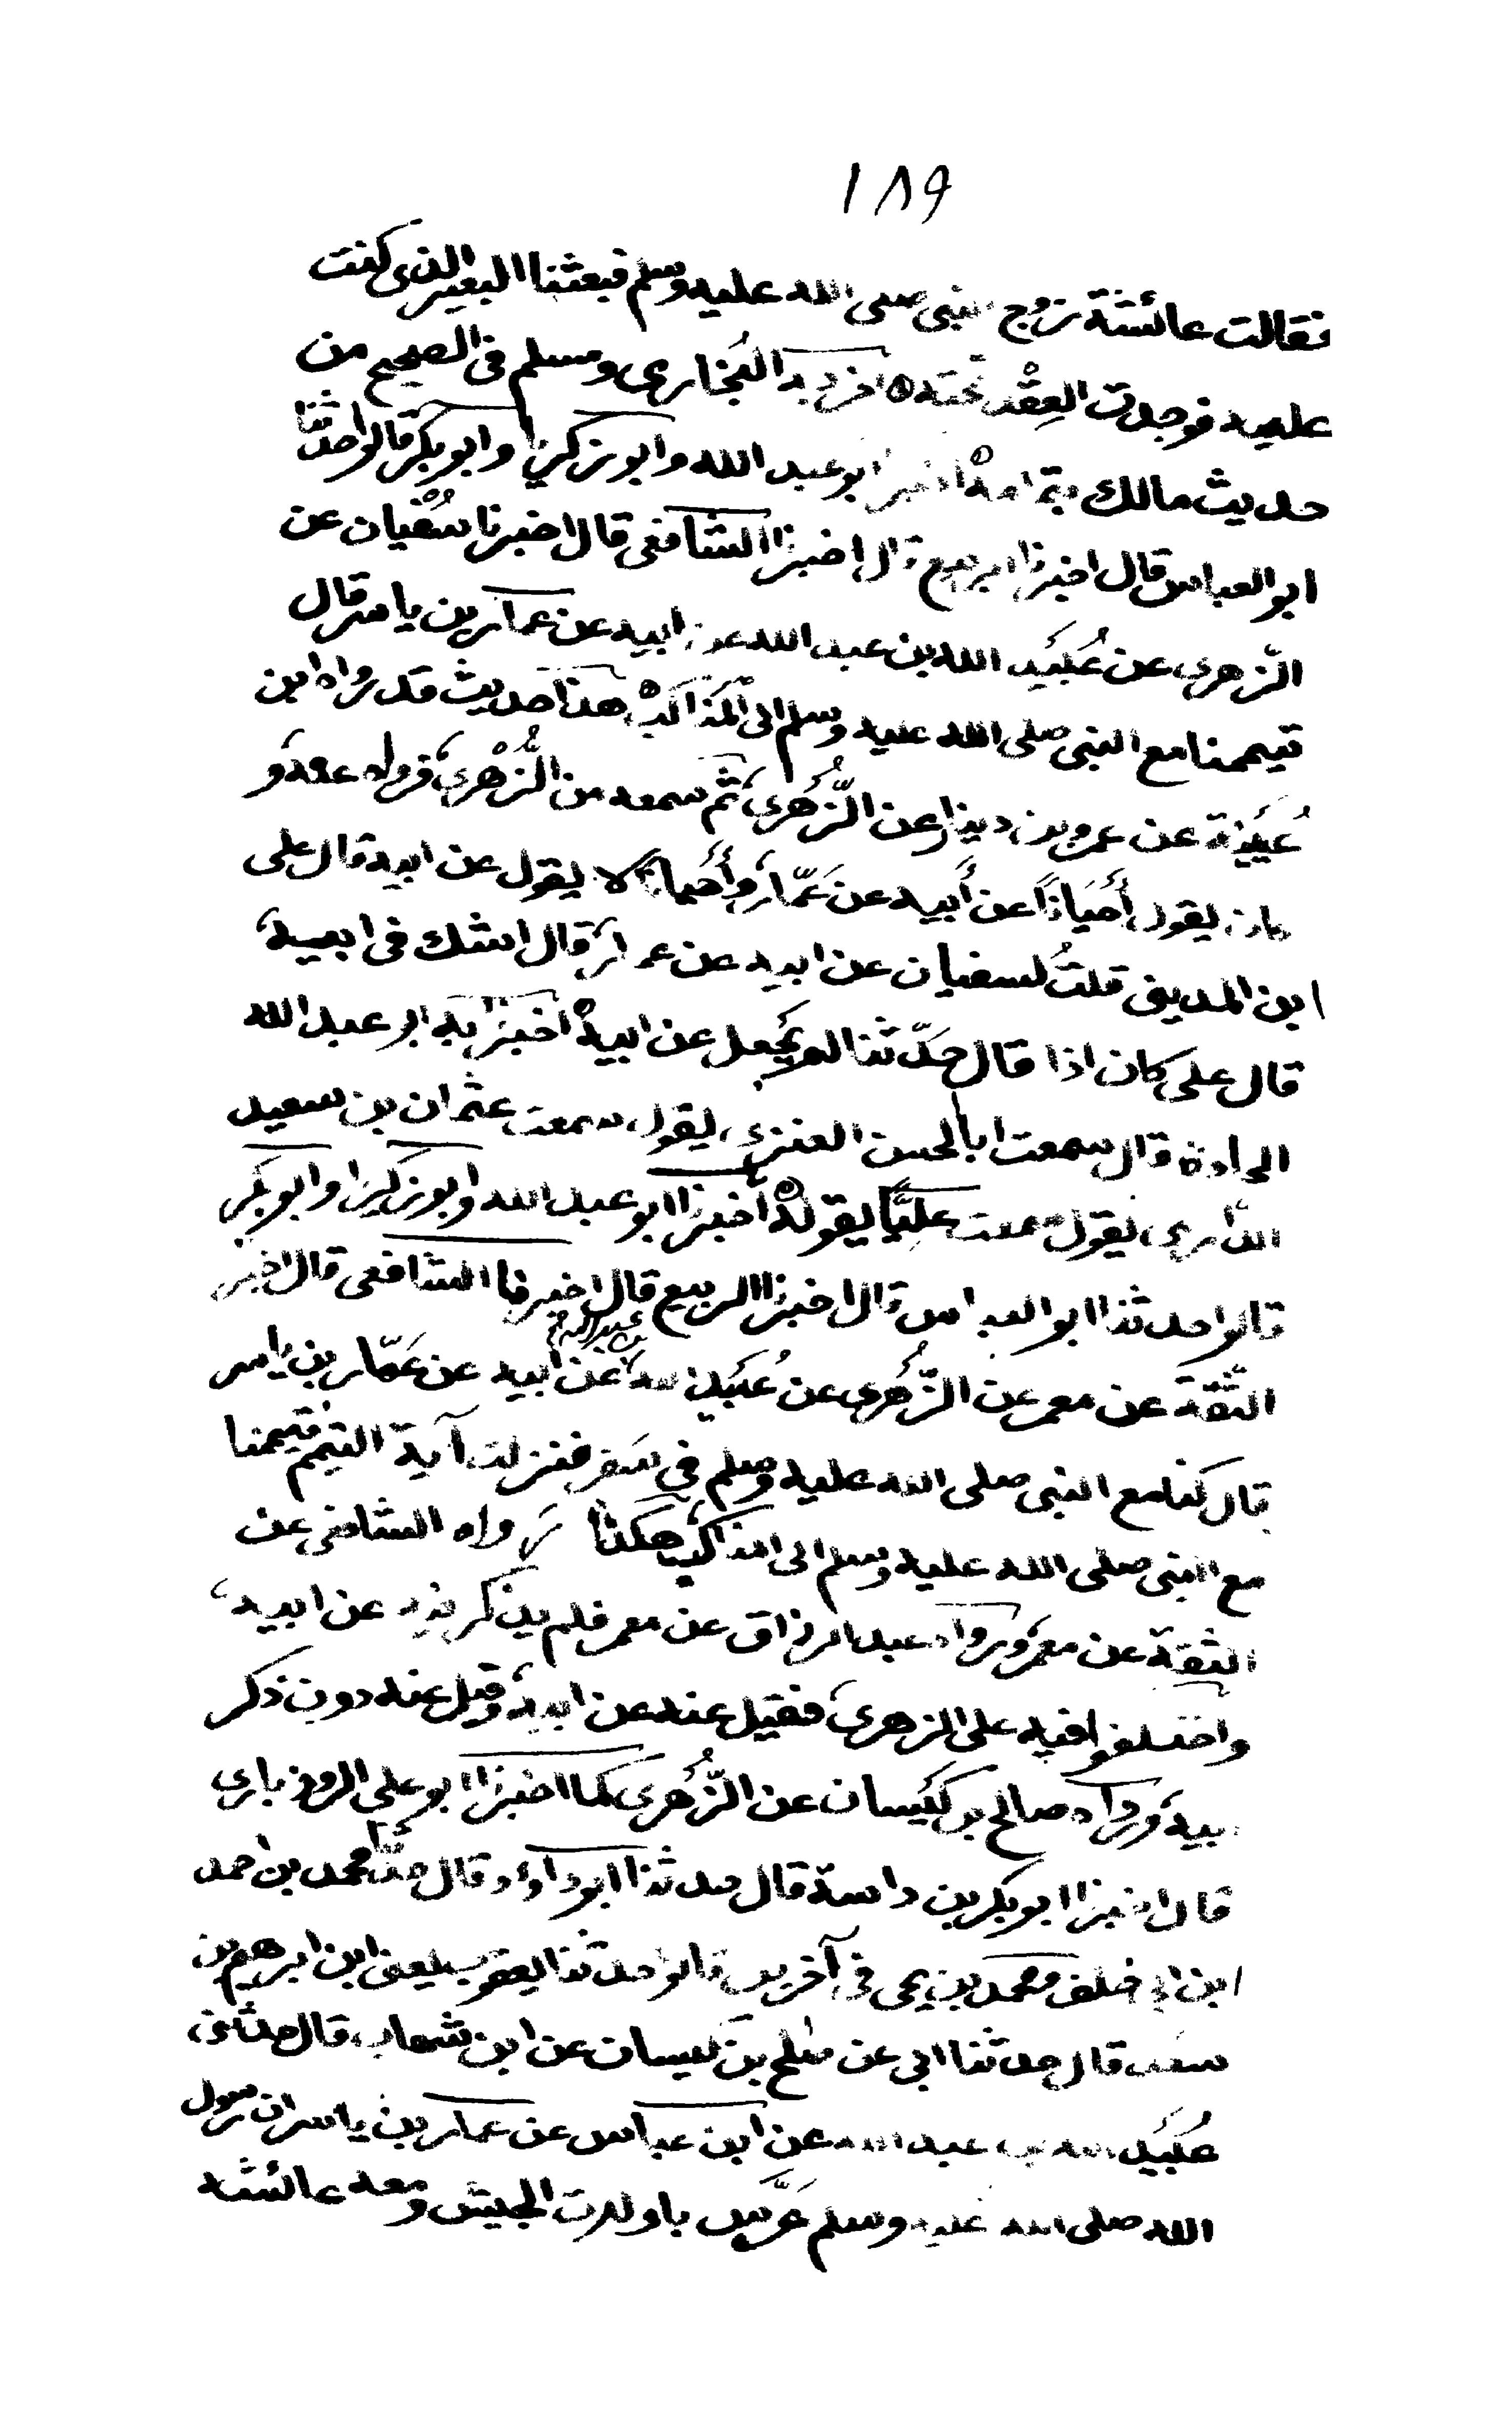 ١٨٩
فقالت عائشة زوج النبى صلى الله عليه وسلم فبعثنا البعير الذى كنت
عليه فوجدت العِقْد تحته ه اخرجه البُخارى ومسلم فى الصحيح من
حديث مالك بتمامه ه اخبرنا ابو عبد الله وابو زكريا وابو بكر قالوا حدثنا
ابو العباس قال اخبرنا الربيع قال اخبرنا الشافعى قال اخبرنا سُفْيان عن
الزهرى عن عُبَيد الله بن عبد الله عن ابيه عن عمار بن ياسر قال
تيممنا مع النبى صلى الله عليه وسلم الى المَنَاكب ه هذا حديث قد رواه ابن
عُيَيْنة عن عمرو بن دينار عن الزُّهرى، ثم سمعه من الزُّهْرى، فرواه عنه و
كان يقول أحيَانًا عن أبيه عن عَمّار، وأحيانًا لا يقول عن ابيه قال على
ابن المدينى قلتُ لسفيان عن ابيه عن عمار، قال اشك فى ابيه،
قال على كان اذا قال حَدّثنا لم يَجعل عن ابيه ه اخبرنا به ابو عبد الله
الحافظ قال سمعت ابا الحسن العنزى، يقول سمعت عثمان بن سعيد
الدارمى، يقول سمعت عليًّا يقوله ه أخبرنا ابو عبد الله وابو زكريا وابو بكر
قالوا حدثنا ابو العباس قال اخبرنا الربيع قال اخبرنا الشافعى قال اخبرنا
الثقة عن معمر عن الزُّهرى عن عُبَيد الله بن عبد الله عن ابيه عن عَمّار بن ياسر
قال كنا مع النبى صلى الله عليه وسلم فى سَفر فنزلت آية التيمم فتيممنا
مع النبى صلى الله عليه وسلم الى المناكب، هكذا رواه الشافعى عن
الثقة عن معمر، ورواه عبد الرزاق عن معمر فلم يذكر فيه عن ابيه،
واختلفوا فيه على الزهرى، فقيل عنه عن ابيه، وقيل عنه دون ذكر
ابيه، ورواه صالح بن كيسان عن الزُّهرى كما اخبرنا ابو على الروذبارى
قال اخبرنا ابو بكر بن داسة قال حدثنا ابو داود قال حدثنا محمد بن احمد
ابن ابى خلف ومحمد بن يحيى فى آخرين قالوا حدثنا يعقوب يعنى ابن ابرهيم بن
سعد قال حدثنا ابى عن صلح بن كيسان عن ابن شهاب، قال حدثنى
عُبَيد الله بن عبد الله عن ابن عباس عن عمار بن ياسر ان رسول
الله صلى الله عليه وسلم عَرَّس باولات الجيش ومعه عائشه